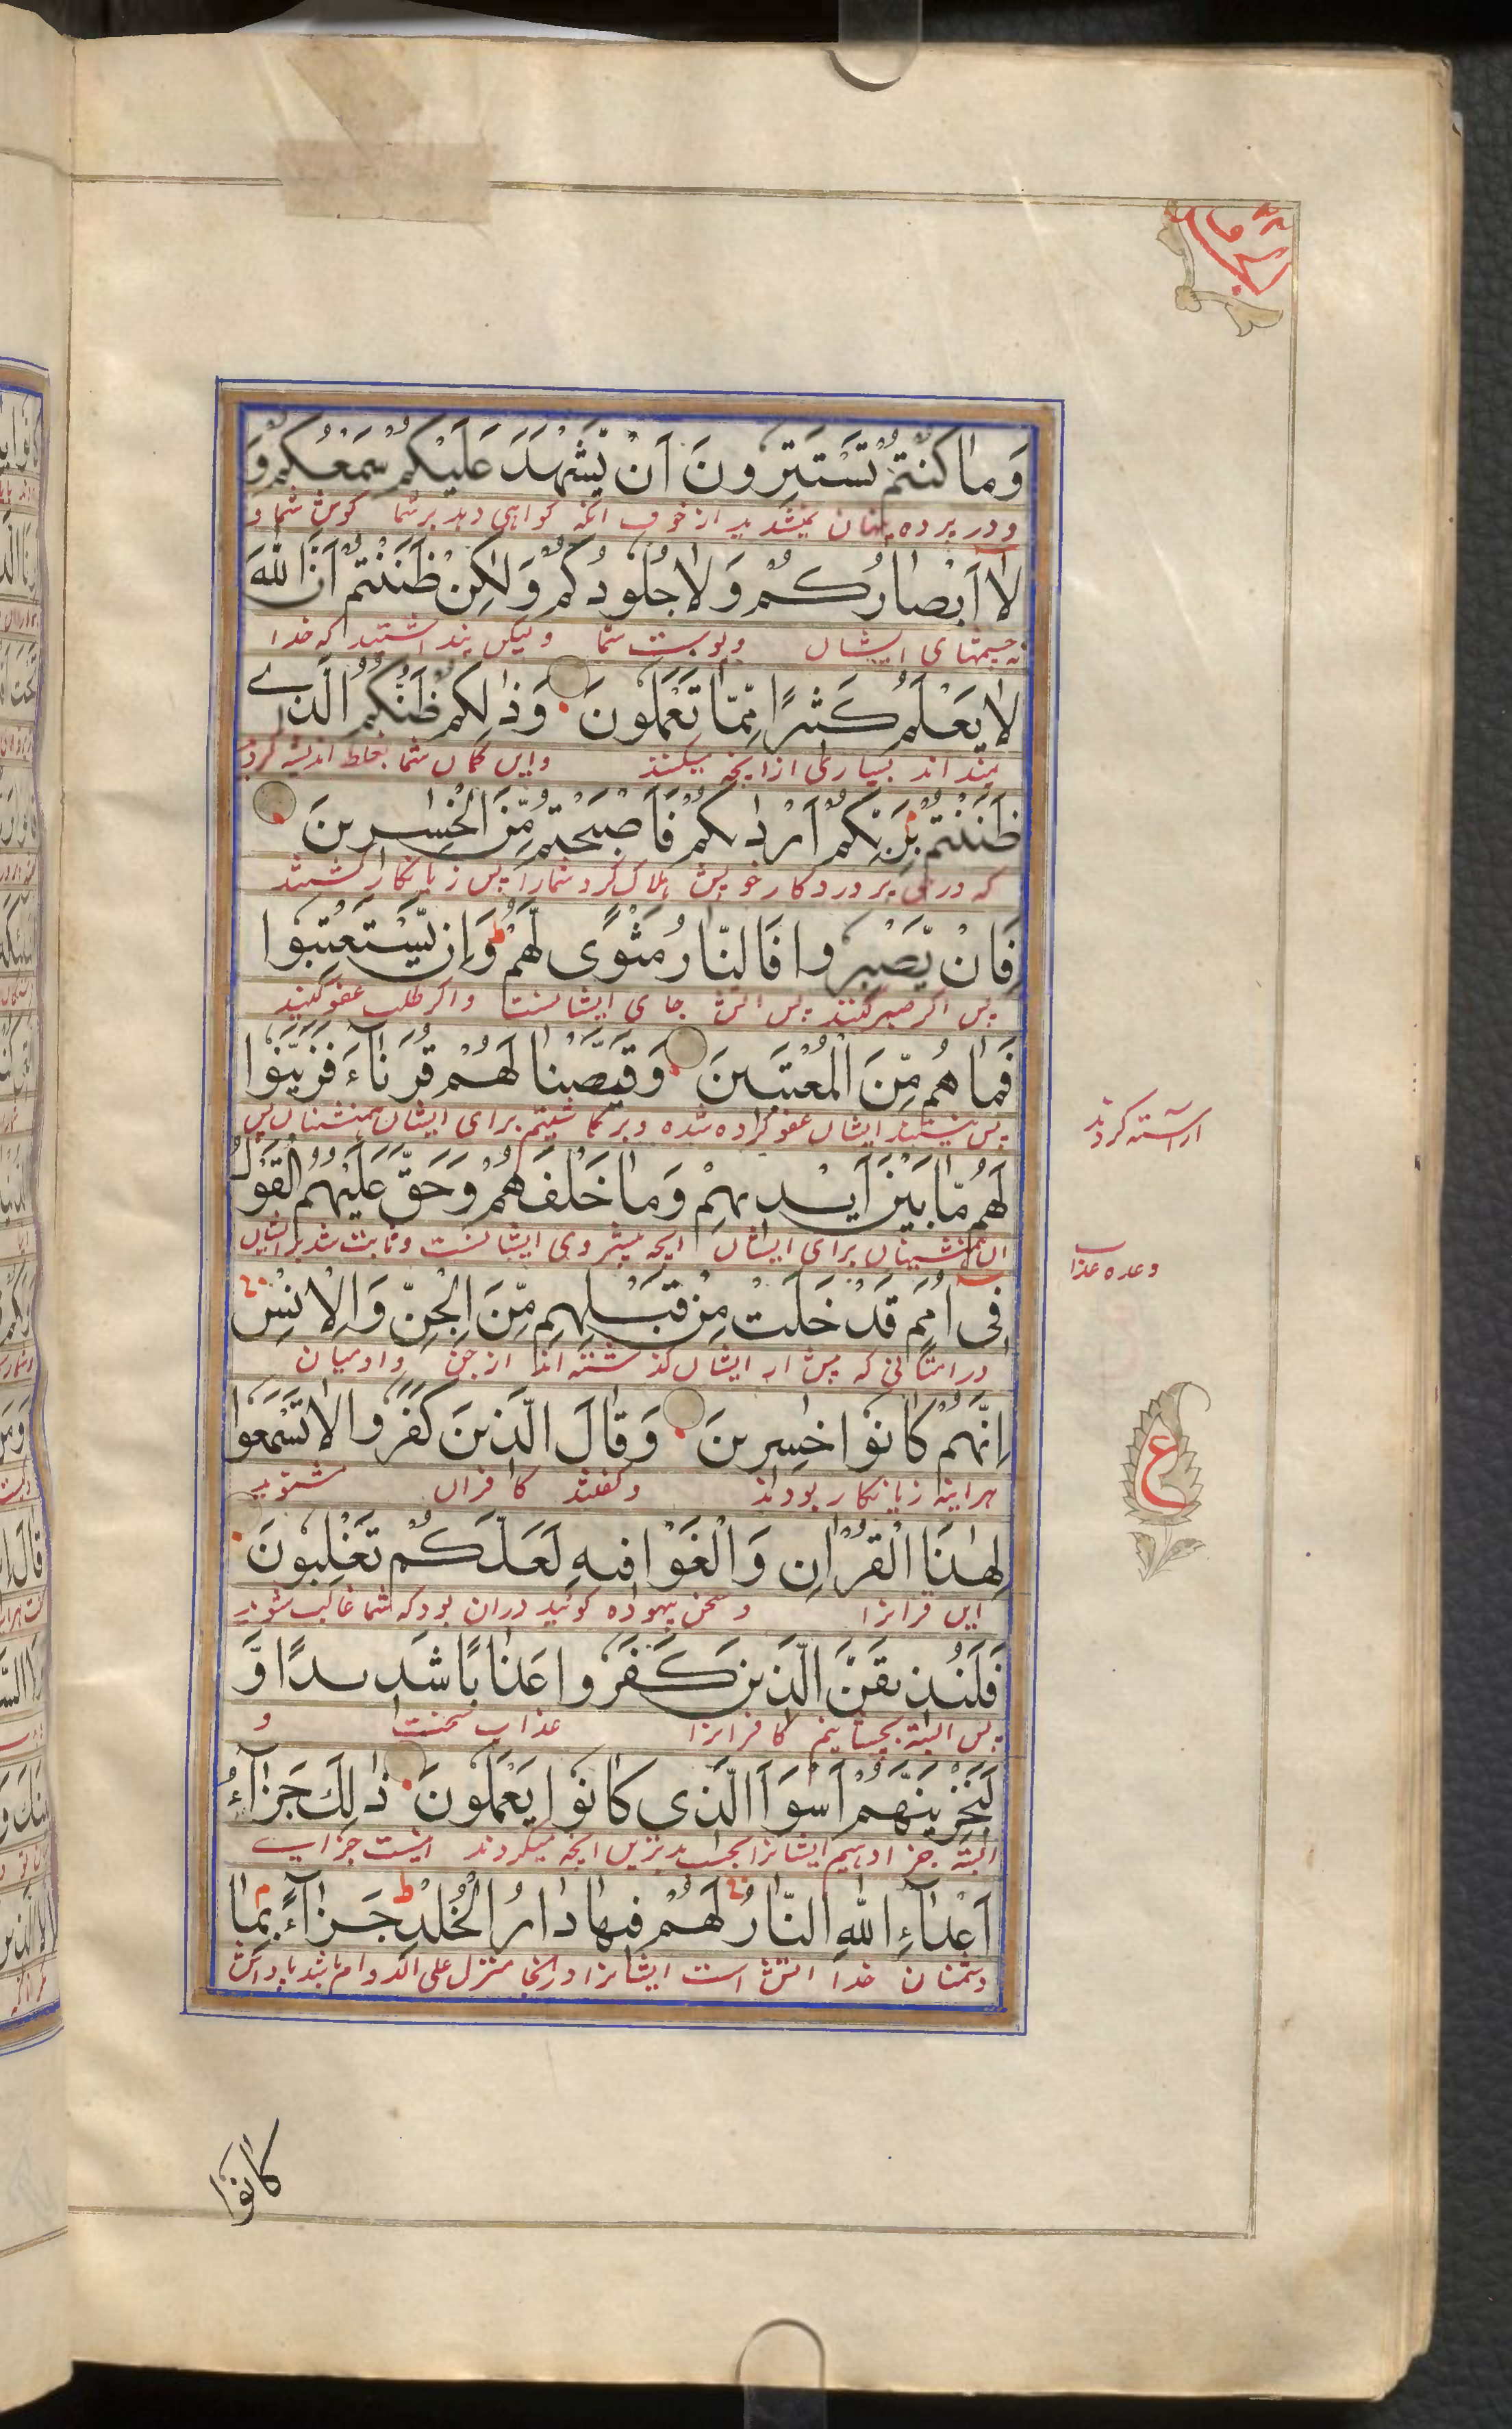 وَمَا كُنْتُمْ تَسْتَتِرُونَ اَنْ يَّشْهَدَ عَلَيْكُمْ سَمْعُكُمْ وَ
و در پرده پنهان نمیشدید از خوف انکه کواهی دهد بر شما کوش شما و
لَآ اَبْصَارُكُمْ وَلَا جُلُودُكُمْ وَلٰكِنْ ظَنَنْتُمْ اَنَّ اللّٰهَ
نه چشمهای ایشان و پوست شما ولیکن پنداشتید که خدا
لَا يَعْلَمُ كَثِيْرًا مِّمَّا تَعْمَلُونَ وَذٰلِكُمْ ظَنُّكُمُ الَّذِے
نمیداند بسیاری از انچه میکنند واین کمان شما بغلط اندیشه کردید
ظَنَنْتُمْ بِرَبِّكُمْ اَرْدٰىكُمْ فَاَصْبَحْتُمْ مِّنَ الْخٰسِرِينَ
که در حق پروردکار خویش هلاک کرد شما را پس زیانکار کشتید
فَاِنْ يَّصْبِرُوا فَالنَّارُ مَثْوًى لَّهُمْ ط وَاِنْ يَّسْتَعْتِبُوا
پس اکر صبر کنند پس اتش جای ایشانست واکر طلب عفو کنند
فَمَا هُمْ مِّنَ الْمُعْتَبِينَ وَقَيَّضْنَا لَهُمْ قُرَنَآءَ فَزَيَّنُوا
پس نیستند ایشان عفو کرده شده و برکماشتیم برای ایشان همنشینان پس
اراسته کردند
لَهُمْ مَّا بَيْنَ اَيْدِيهِمْ وَمَا خَلْفَهُمْ وَحَقَّ عَلَيْهِمُ الْقَوْلُ
ان همنشینان برای ایشان انچه پیش روی ایشانست وثابت شد بر ایشان
وعده عذاب
فِى اُمَمٍ قَدْ خَلَتْ مِنْ قَبْلِهِمْ مِّنَ الْجِنِّ وَالْاِنْسِ
در امتانی که پیش از ایشان کذشته اند از جن وادمیان
اِنَّهُمْ كَانُوا خٰسِرِينَ وَقَالَ الَّذِينَ كَفَرُوا لَا تَسْمَعُوا
هراینه زیانکار بودند وکفتند کافران مشنوید
ع
لِهٰذَا الْقُرْاٰنِ وَالْغَوْا فِيهِ لَعَلَّكُمْ تَغْلِبُونَ
این قرانرا وسخن بیهوده کوئید دران بود که شما غالب شوید
فَلَنُذِيقَنَّ الَّذِينَ كَفَرُوا عَذَابًا شَدِيدًا وَّ
پس البته بچشانیم کافرانرا عذاب سخت و
لَنَجْزِيَنَّهُمْ اَسْوَاَ الَّذِى كَانُوا يَعْمَلُونَ ذٰلِكَ جَزَآءُ
البته جزا دهیم ایشانرا بحسب بدترین انچه میکردند اینست جزای
اَعْدَآءِ اللّٰهِ النَّارُ لَهُمْ فِيهَا دَارُ الْخُلْدِ ط جَزَآءً بِمَا
دشمنان خدا اتش است ایشانرا درانجا منزل علی الدوام باشد پاداش
كَانُوا